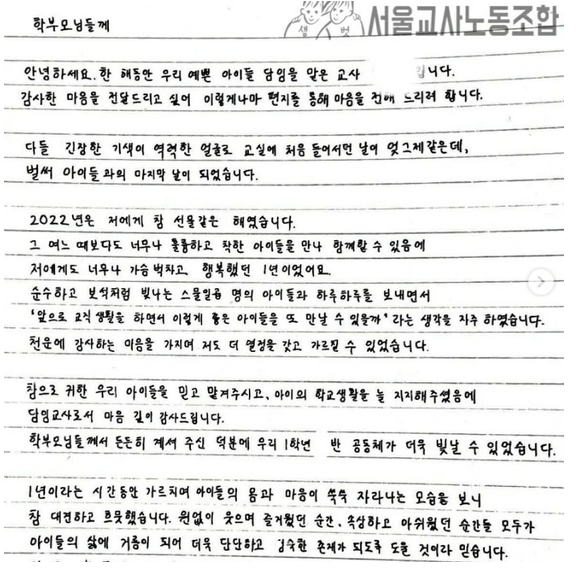 서울교사노동조합
학부모님들께
안녕하세요. 한 해동안 우리 예쁜 아이들 담임을 맡은 교사 입니다.
감사한 마음을 전달드리고 싶어 이렇게나마 편지를 통해 마음을 전해 드리려 합니다.
다들 긴장한 기색이 역력한 얼굴로 교실에 처음 들어서던 날이 엊그제같은데,
벌써 아이들과의 마지막 날이 되었습니다.
2022년은 저에게 참 선물같은 해였습니다.
그 여느 때보다도 너무나 훌륭하고 착한 아이들을 만나 함께할 수 있음에
저에게도 너무나 가슴 벅차고 행복했던 1년이었어요.
순수하고 보석처럼 빛나는 스물일곱 명의 아이들과 하루하루를 보내면서
'앞으로 교직 생활을 하면서 이렇게 좋은 아이들을 또 만날 수 있을까' 라는 생각을 자주 하였습니다.
천운에 감사하는 마음을 가지며 저도 더 열정을 갖고 가르칠 수 있었습니다.
참으로 귀한 우리 아이들을 믿고 맡겨주시고, 아이의 학교생활을 늘 지지해주셨음에
담임교사로서 마음 깊이 감사드립니다.
학부모님들께서 든든히 계셔 주신 덕분에 우리 1학년 반 공동체가 더욱 빛날 수 있었습니다.
1년이라는 시간동안 가르치며 아이들의 몸과 마음이 쑥쑥 자라나는 모습을 보니
참 대견하고 흐뭇했습니다. 원없이 웃으며 즐거웠던 순간, 속상하고 아쉬웠던 순간들 모두가
아이들의 삶에 거름이 되어 더욱 단단하고 성숙한 존재가 되도록 도울 것이라 믿습니다.